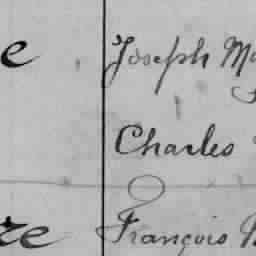 e Joseph
Charles
re François